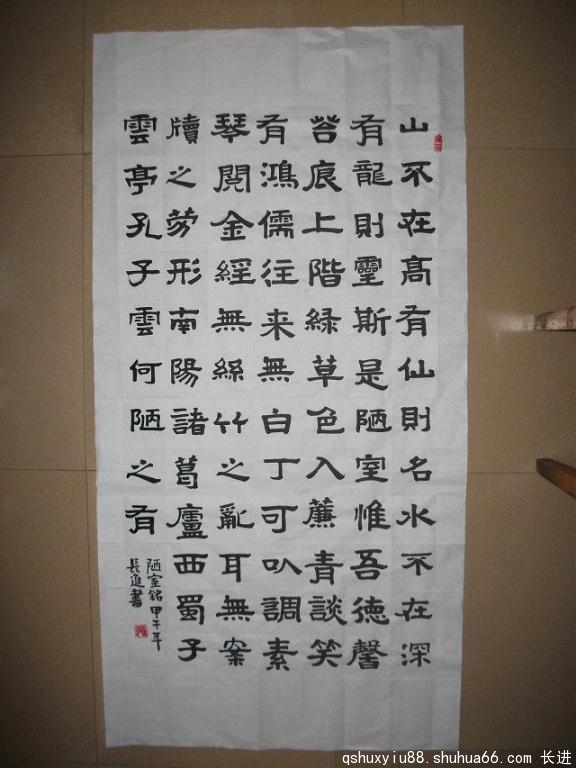 山不在髙有仙則名水不在深
有龍則靈斯是陋室惟吾徳馨
苔痕上階綠草色入簾青談笑
有鴻儒往来無白丁可以調素
琴閱金經無絲竹之亂耳無案
牘之勞形南陽諸葛廬西蜀子
雲亭孔子雲何陋之有
陋室銘甲午年
長進書
qshuxyiu88.shuhua66.com 长进